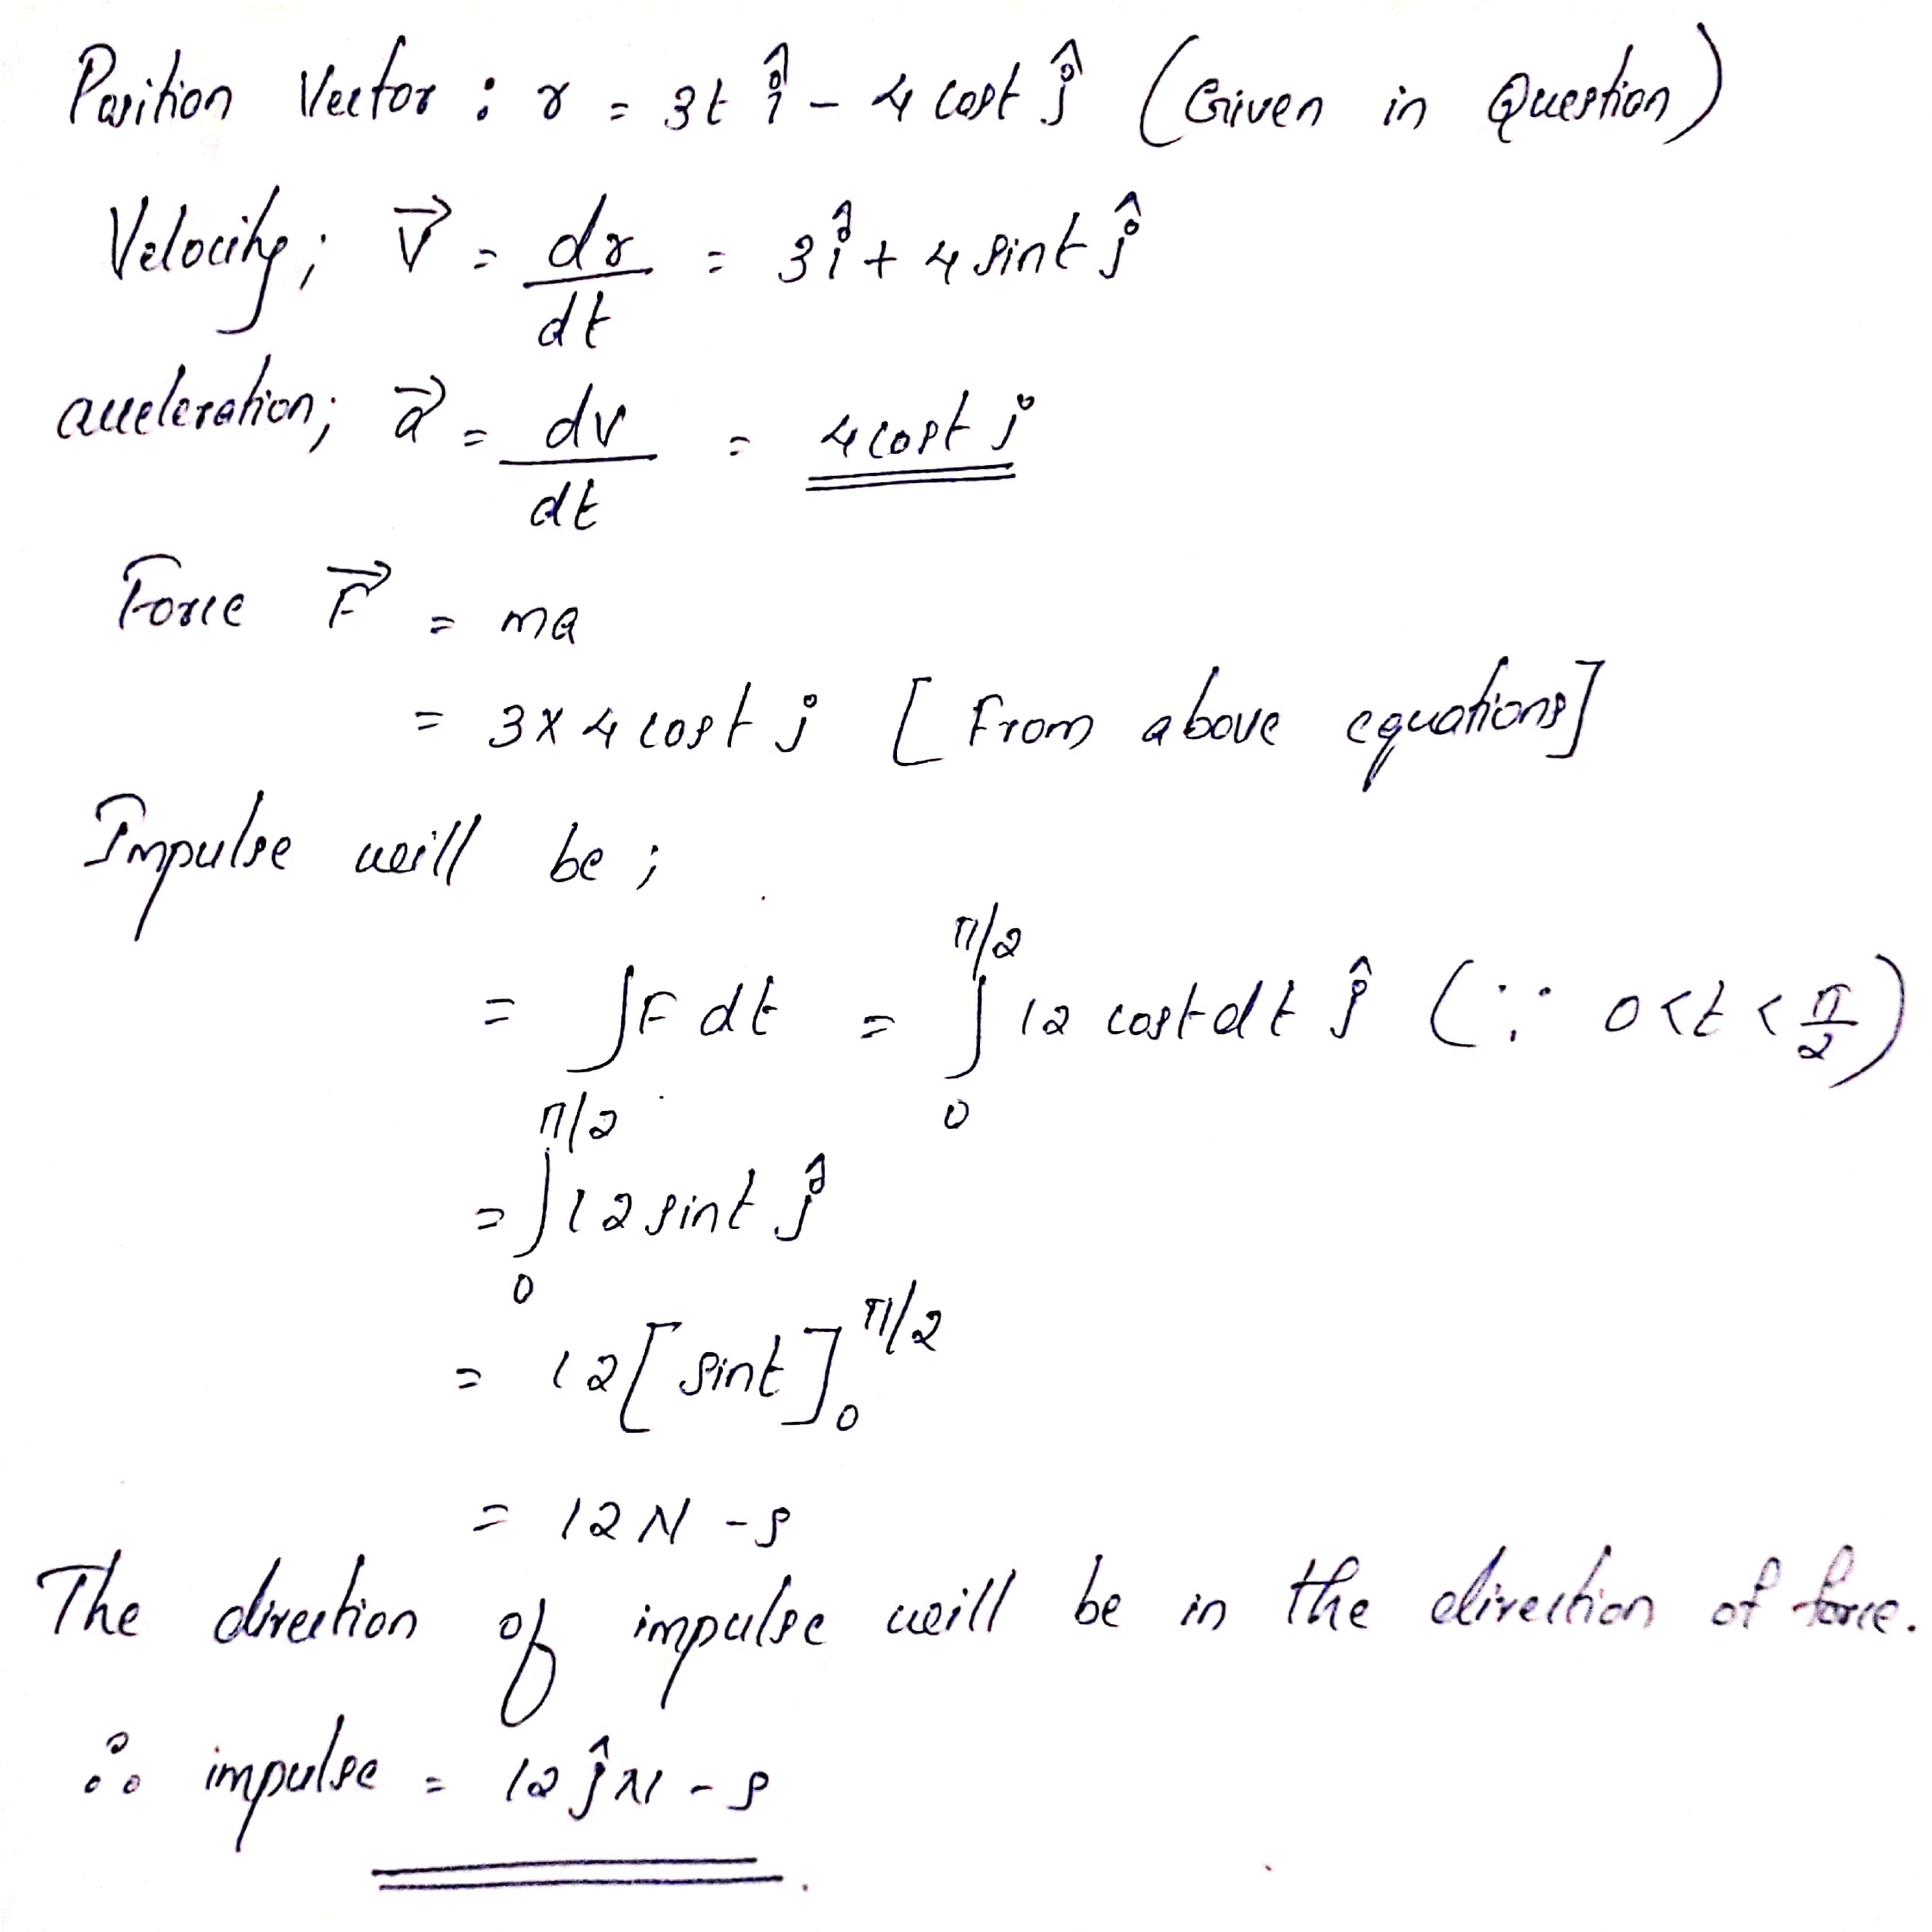 Position Vector : r = 3t î - 4 cost ĵ (Given in Question)
Velocity; V⃗ = dr/dt = 3î + 4 sint ĵ
acceleration; a⃗ = dv/dt = 4 cost j
Force F⃗ = ma
= 3 x 4 cost j [From above equations]
Impulse will be ;
= ∫F dt = ∫₀^π/2 12 cost dt ĵ (∵ 0<t<π/2)
= ∫₀^π/2 12 sint ĵ
= 12[sint]₀^π/2
= 12 N - s
The direction of impulse will be in the direction of force.
∴ impulse = 12 ĵ N - s.